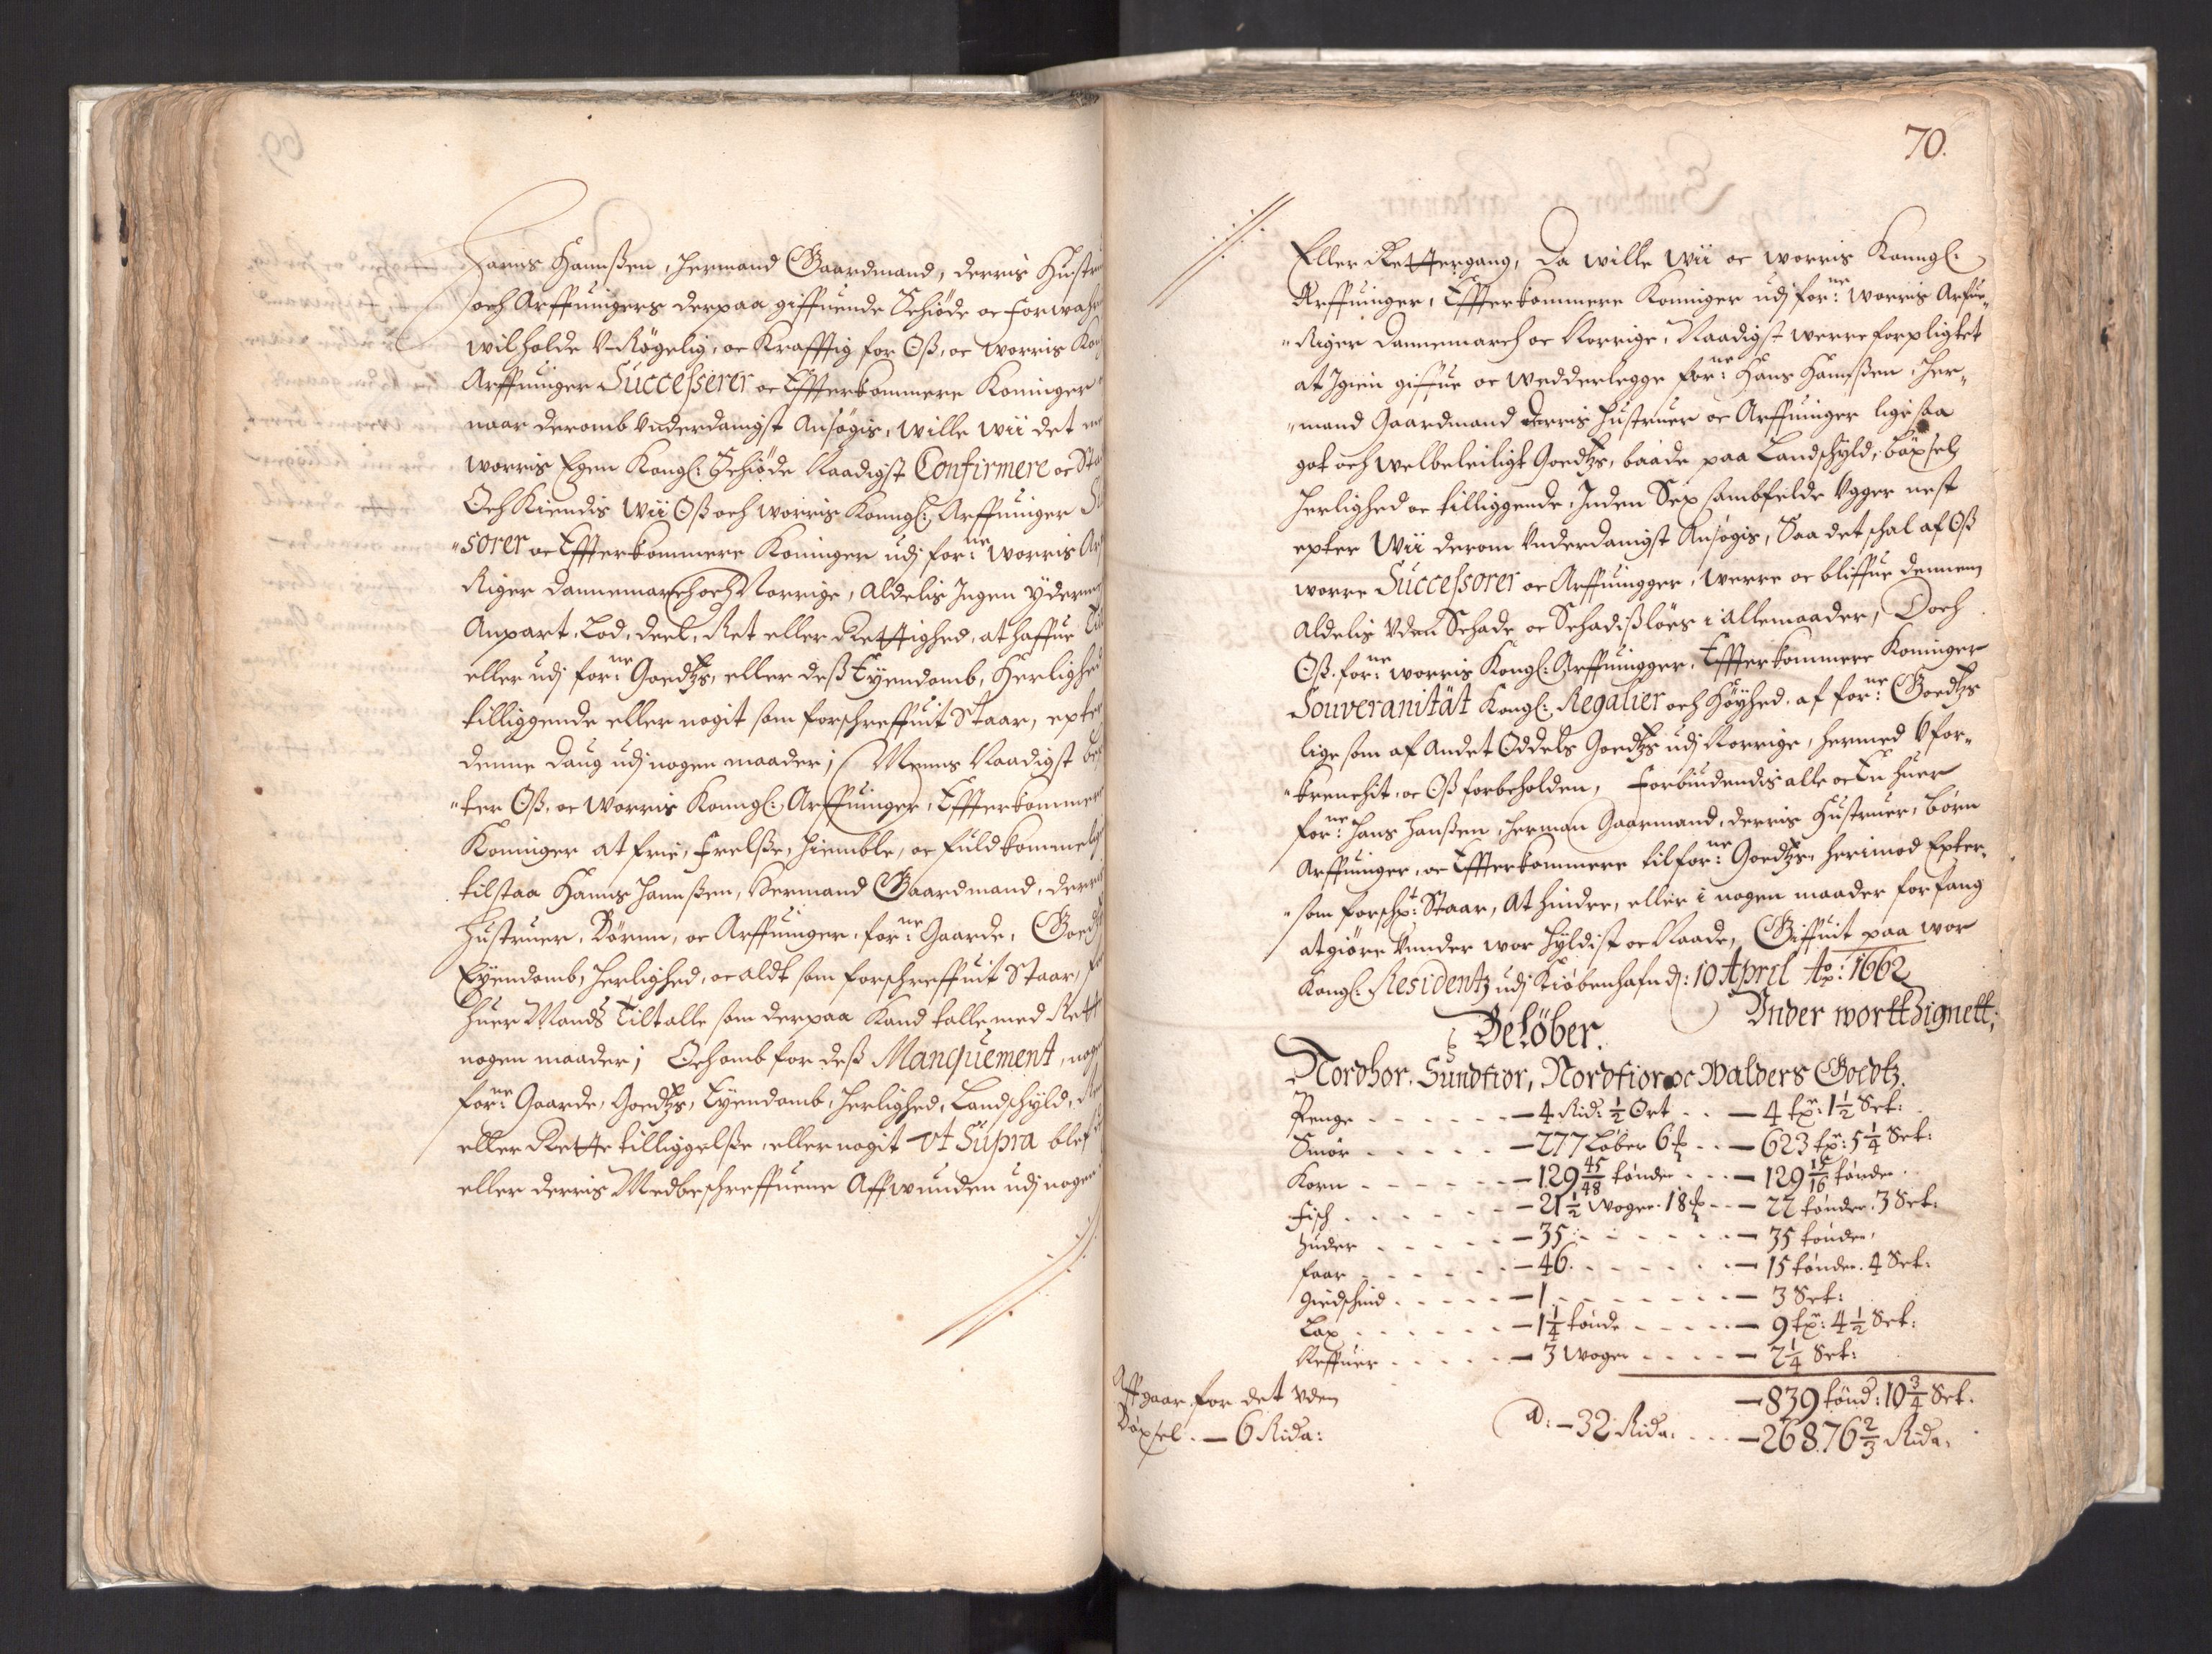 Hanns Hannßen, Hermand Gaardmand, derris Hustru
och Arffuingers derpaa giffuende Schiöde oc forwahr
wil holde V-Rögelig, oc Krafftig for Oß, oc worris Kon
Arffuinger Successerer oc Effterkommere Koninger
naar deromb Vnderdanigst Ansøgis, wille wii det
worris Egen Kongl: Schiøde Naadigst Confirmere oc Sta
Och Kiendis Wii Oß och worris Konngl: Arffuinger
"sorer oc Effterkommere Koninger udj forne: worris Arf
Riger Dannemarch och Norrige, Aldelis Ingen ydermer
Anpart, Lod, deel, Ret eller Rettighed, at haffue Til
eller udj forne: Goedtzs, eller deß Eyendomb, Herlighed
tilliggende eller nogit som forschreffuit Staar, epter
denne Daug udj nogen maader; Menns Naadigst
"ter Oß, oc worris Konngl: Arffuinger, Effterkommer
Koninger at frie, frelße, hiemble, oc fuldkommelig
tilstaa Hanns Hannßen, Hermand Gaardmand, derris
Hustruer, Börnn, oc Arffuinger, forne: Gaarde, Goedtz
Eyendomb, Herlighed, oc aldt som forschreffuit Staar, for
huer Mands Tiltalle som derpaa kand talle med Rett
nogen maader; Och omb for deß Manquement, nog
forne: Gaarde, Goedtzs, Eyendomb, Herlighed, Landschyld,
eller Rette tilliggelße, eller nogit vt Supra blef
eller derris Medbeschreffuene Affwunden udj nogen
70.
Eller Rettergang, Da wille Wii oc worris Konngl:
Arffuinger, Effterkommere Koninger udj forne: worris Arfue-
"Riger Dannemarch oc Norrige, Naadigst werre forpligtet
at Igien giffue oc wedderlegge forne: Hans Hannßen, Her-
"mand Gaardmand derris Hustruer oc Arffuinger ligesaa
got och welbeleiligt Goedtzs, baade paa Landschyld, böxsel
Herlighed oc tilliggende, Inden Sex sambfelde Vgger nest
epter Wii derom Vnderdanigst Ansøgis, Saa det schal af Oß
worre Successorer oc Arffuingger, werre oc bliffue dennem
Aldelis Vden Schade oc Schadißløes i allemaader, Doch
Oß. forne: worris Kongl: Arffuingger, Effterkommere Koninger
Souveranität Kongl: Regalier och Höyhed, af forne: Goedtzs
lige som af Andet Oddels Goedtzs udj Norrige, hermed Vfor-
"krenchit, oc Oß forbeholden, Forbiudendis alle oc En huer
forne: Hans Hanßen, Herman Gaarmand, derris Hustruer, Börn
Arffuinger, oc Effterkommere til forne: Goedtzs, herimod Epter-
"som forschr: Staar, At hindre, eller i nogen maader forfang
at giöre Vnder wor Hyldist oc Naade, Giffuit paa wor
Kongl: Residentz udj Kiøbenhafn d: 10 April Ao: 1662
Vnder wortt Zignett;
Beløber.
Nordhor. Sundfior, Nordfior oc Walders Goedtz.
Penge - - - 4 Rid: ½ Ort - - 4 tr: 1½ Set:
Smør - - - 277 Löber 6 ℔ - - 623 tr: 5¼ Set:
Korn - - - 129 45/48 tönder - - 129 15/16 tönder
Fisch - - - 21½ Woger. 18 ℔ - - 22 tönder. 3 Set:
Huder - - - 35 - - - 35 tönder,
Faar - - - 46 - - - 15 tönder. 4 Set:
Giedschind - - - 1 - - - 3 Set:
Lax - - - 1¼ tönde - - - 9 tr: 4½ Set:
Neffuer - - - 3 Woger - - - 2¼ Set:
839 tönd: 10¾ Set.
Affgaar for det vden
Böxsel. - 6 Rida:
a: - 32 Rida: - - - 26876⅔ Rida,